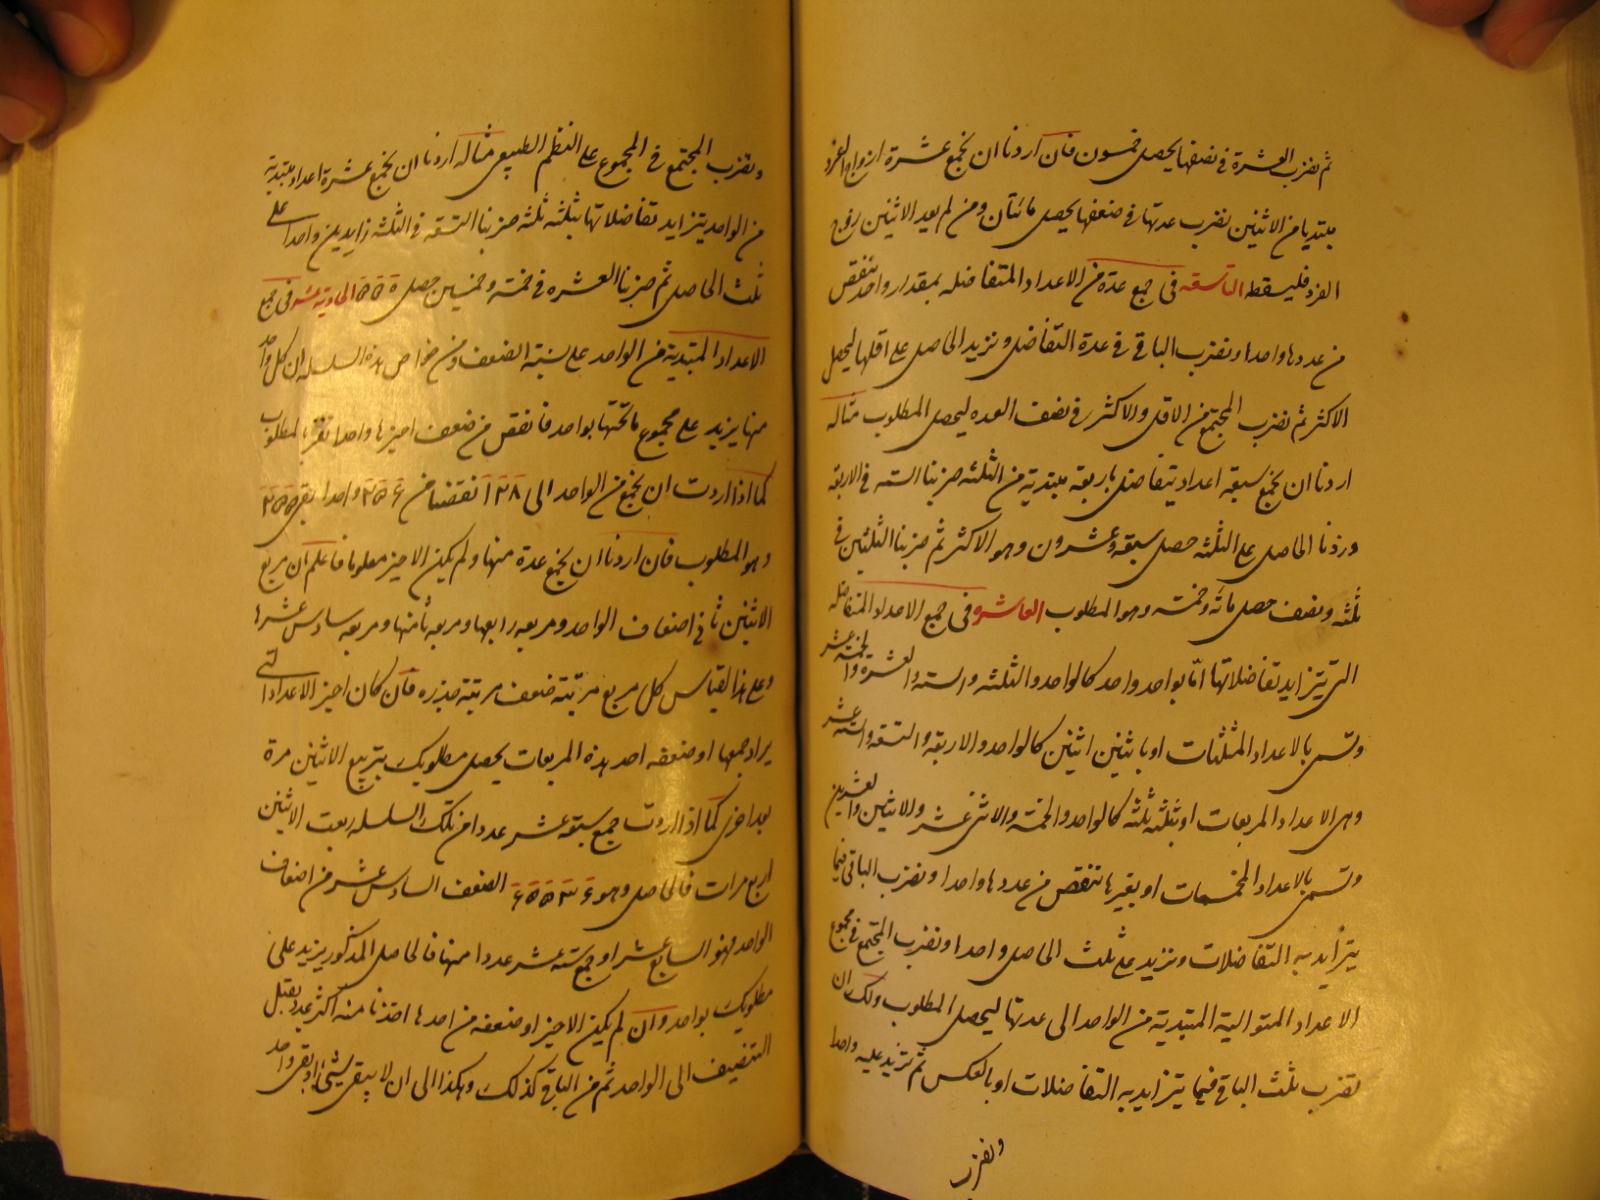 ثم نضرب العشرة فى نصفها يحصل خمسون فان اردنا ان نجمع عشرة ازواج الفرد
مبتديا من الاثنين نضرب عدتها فى ضعفها يحصل مائتان ومن لم يعد الاثنين زوج
الفرد فليسقطه التاسعة فى جمع عدة من الاعداد المتفاضله بمقدار واحد ننقص
من عددها واحدا ونضرب الباقى فى عدة التفاضل ونزيد الحاصل على اقلها ليحصل
الاكثر ثم نضرب المجتمع من الاقل والاكثر فى نصف العده ليحصل المطلوب مثاله
اردنا ان نجمع سبعة اعداد يتفاضل باربعة مبتدية من الثلثه ضربنا السته فى الاربعة
وزدنا الحاصل على الثلثه حصل سبعة وعشرون وهو الاكثر ثم ضربنا الثلثين فى
ثلثه ونصف حصل مائة وخمسه وهو المطلوب العاشره فى جمع الاعداد المتفاضله
التى يتزايد تفاضلاتها اما بواحد واحد كالواحد والثلثه والسته والعشرة والخمسة عشر
وتسمى بالاعداد المثلثات او باثنين اثنين كالواحد والاربعة والتسعه والستة عشر
وهى الاعداد المربعات او بثلثه ثلثه كالواحد والخمسة والاثنى عشر والاثنين والعشرين
وتسمى بالاعداد المخمسات او بغيرها ننقص من عددها واحدا ونضرب الباقى فيما
يتزايد به التفاضلات ونزيد على ثلث الحاصل واحدا ونضرب المجتمع فى مجموع
الاعداد المتوالية المبتدية من الواحد الى عدتها ليحصل المطلوب ولك ان
تضرب ثلث الباقى فيما يتزايد به التفاضلات او بالعكس ثم تزيد عليه واحدا
وتضرب
وتضرب المجتمع فى المجموع على النظم الطبيعى مثاله اردنا ان نجمع عشرة اعداد مبتدية
من الواحد يتزايد تفاضلاتها بثلثه ثلثه ضربنا التسعة فى الثلثه زايدين واحدا على
ثلث الحاصل ثم ضربنا العشره فى خمسة وخمسين حصل ٥٥٠ الحادية عشر فى جمع
الاعداد المبتدية من الواحد على نسبة الضعف ومن خواص هذه السلسله ان كل واحد
منها يزيد على مجموع ما تحتها بواحد فانقص من ضعف اخيرها واحدا المطلوب
كما اذا اردت ان نجمع من الواحد الى ١٢٨ نقصنا من ٢٥٦ واحدا بقى ٢٥٥
وهو المطلوب فان اردنا ان نجمع عدة منها ولم يكن الاخير معلوما فاعلم ان مربع
الاثنين ثا فى اضعاف الواحد ومربعه رابعها ومربعه ثامنها ومربعه سادس عشرها
وعلى هذا القياس كل مربع مرتبته ضعف مرتبة جذره فان كان اخير الاعداد التى
يراد جمعها او ضعفه احد هذه المربعات يحصل مطلوبك بتربيع الاثنين مرة
بعد اخرى كما اذا اردت جمع سبعة عشر عددا من تلك السلسله ربعت الاثنين
اربع مرات فالحاصل وهو ٦٥٥٣٦ الضعف السادس عشر من اضعاف
الواحد فهو السابع عشر او جمع ستة عشر عددا منها فالحاصل المذكور يزيد على
مطلوبك بواحد وان لم يكن الاخير او ضعفه من احدها اخذنا منه اكثر عدد يقبل
التنصيف الى الواحد ثم من الباقى كذلك وهكذا الى ان لا يبقى شئ او يبقى واحد